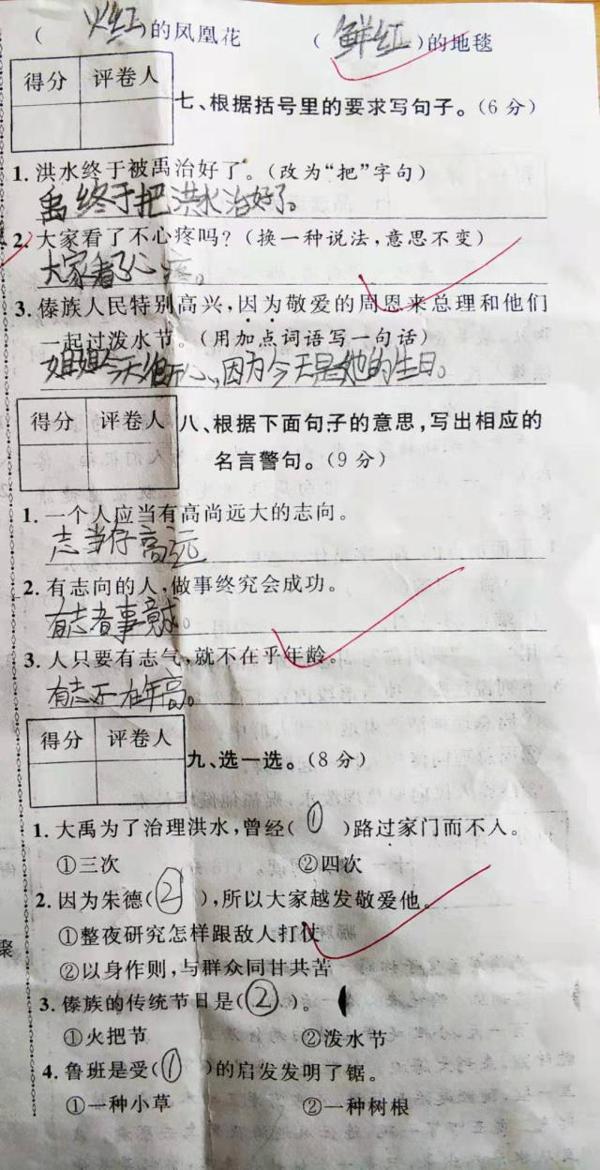 (火红)的凤凰花 (鲜红)的地毯
得分 评卷人
七、根据括号里的要求写句子。(6分)
1.洪水终于被禹治好了。(改为“把”字句)
禹终于把洪水治好了。
2.大家看了不心疼吗?(换一种说法,意思不变)
大家看了心疼。
3.傣族人民特别高兴,因为敬爱的周恩来总理和他们
一起过泼水节。(用加点词语写一句话)
姐姐今天很开心,因为今天是她的生日。
得分 评卷人
八、根据下面句子的意思,写出相应的
名言警句。(9分)
1.一个人应当有高尚远大的志向。
志当存高远
2.有志向的人,做事终究会成功。
有志者事竟成。
3.人只要有志气,就不在乎年龄。
有志不在年高。
得分 评卷人
九、选一选。(8分)
1.大禹为了治理洪水,曾经(①)路过家门而不入。
①三次 ②四次
2.因为朱德(②),所以大家越发敬爱他。
①整夜研究怎样跟敌人打仗
②以身作则,与群众同甘共苦
3.傣族的传统节日是(②)。
①火把节 ②泼水节
4.鲁班是受(①)的启发发明了锯。
①一种小草 ②一种树根
聚